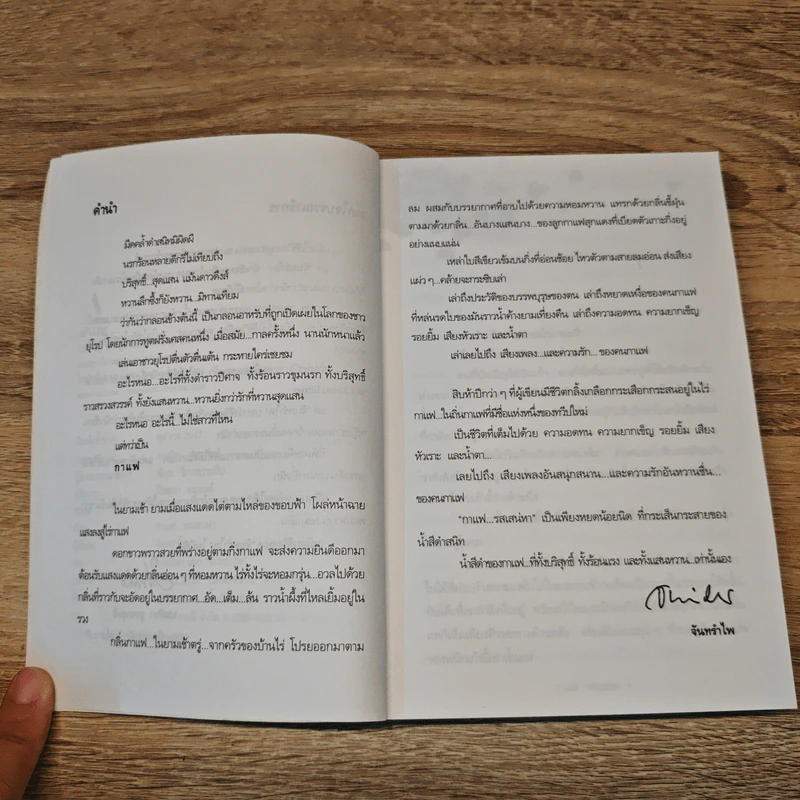 คำนำ
มืดคล้ำดำสนิทมิผิดผี
นรกร้อนหลายดีกรีไม่เทียบถึง
บริสุทธิ์...สุดแสน แม้นดาวดึงส์
หวานลึกซึ้งก็ยังหวาน...มิทานเทียม
ว่ากันว่ากลอนข้างต้นนี้ เป็นกลอนอาหรับที่ถูกเปิดเผยในโลกของชาว
ยุโรป โดยนักการทูตฝรั่งเศสคนหนึ่ง เมื่อสมัย...กาลครั้งหนึ่ง นานนักหนาแล้ว
เล่นเอาชาวยุโรปตื่นตัวตื่นเต้น กระหายใคร่เชยชม
อะไรหนอ...อะไรที่ทั้งดำราวปีศาจ ทั้งร้อนราวขุมนรก ทั้งบริสุทธิ์
ราวสรวงสวรรค์ ทั้งยังแสนหวาน...หวานยิ่งกว่ารักที่หวานสุดแสน
อะไรหนอ อะไรนี้...ไม่ใช่สาวที่ไหน
แต่ทว่าเป็น
กาแฟ
ในยามเช้า ยามเมื่อแสงแดดไต่ตามไหล่ของขอบฟ้า โผล่หน้าฉาย
แสงลงสู่ไร่กาแฟ
ดอกขาวพราวสวยที่พร่างอยู่ตามกิ่งกาแฟ จะส่งความยินดีออกมา
ต้อนรับแสงแดดด้วยกลิ่นอ่อน ๆ ที่หอมหวาน ไร่ทั้งไร่จะหอมกรุ่น...อวลไปด้วย
กลิ่นที่ราวกับจะอัดอยู่ในบรรยากาศ...อัด...เต็ม...ล้น ราวน้ำผึ้งที่ไหลเยิ้มอยู่ใน
รวง
กลิ่นกาแฟ...ในยามเช้าตรู่...จากครัวของบ้านไร่ โปรยออกมาตาม
ลม ผสมกับบรรยากาศที่อาบไปด้วยความหอมหวาน แทรกด้วยกลิ่นขี้ฝุ่น
ตามมาด้วยกลิ่น...อันบางแสนบาง...ของลูกกาแฟสุกแดงที่เบียดตัวเกาะกิ่งอยู่
อย่างแนบแน่น
เหล่าใบสีเขียวเข้มบนกิ่งที่อ่อนช้อย ไหวตัวตามสายลมอ่อน ส่งเสียง
แผ่ว ๆ...คล้ายจะกระซิบเล่า
เล่าถึงประวัติของบรรพบุรุษของตน เล่าถึงหยาดเหงื่อของคนกาแฟ
ที่หล่นรดใบของมันราวน้ำค้างยามเที่ยงคืน เล่าถึงความอดทน ความยากเข็ญ
รอยยิ้ม เสียงหัวเราะ และน้ำตา
เล่าเลยไปถึง เสียงเพลง...และความรัก... ของคนกาแฟ
สิบห้าปีกว่า ๆ ที่ผู้เขียนมีชีวิตกลิ้งเกลือกกระเสือกกระสนอยู่ในไร่
กาแฟ...ในถิ่นกาแฟที่มีชื่อแห่งหนึ่งของทวีปใหม่
เป็นชีวิตที่เต็มไปด้วย ความอดทน ความยากเข็ญ รอยยิ้ม เสียง
หัวเราะ และน้ำตา...
เลยไปถึง เสียงเพลงอันสนุกสนาน...และความรักอันหวานชื่น...
ของคนกาแฟ
"กาแฟ...รสเสน่หา" เป็นเพียงหยดน้อยนิด ที่กระเส็นกระสายของ
น้ำสีดำสนิท
น้ำสีดำของกาแฟ...ที่ทั้งบริสุทธิ์ ทั้งร้อนแรง และทั้งแสนหวาน...เท่านั้นเอง
จันทรำไพ